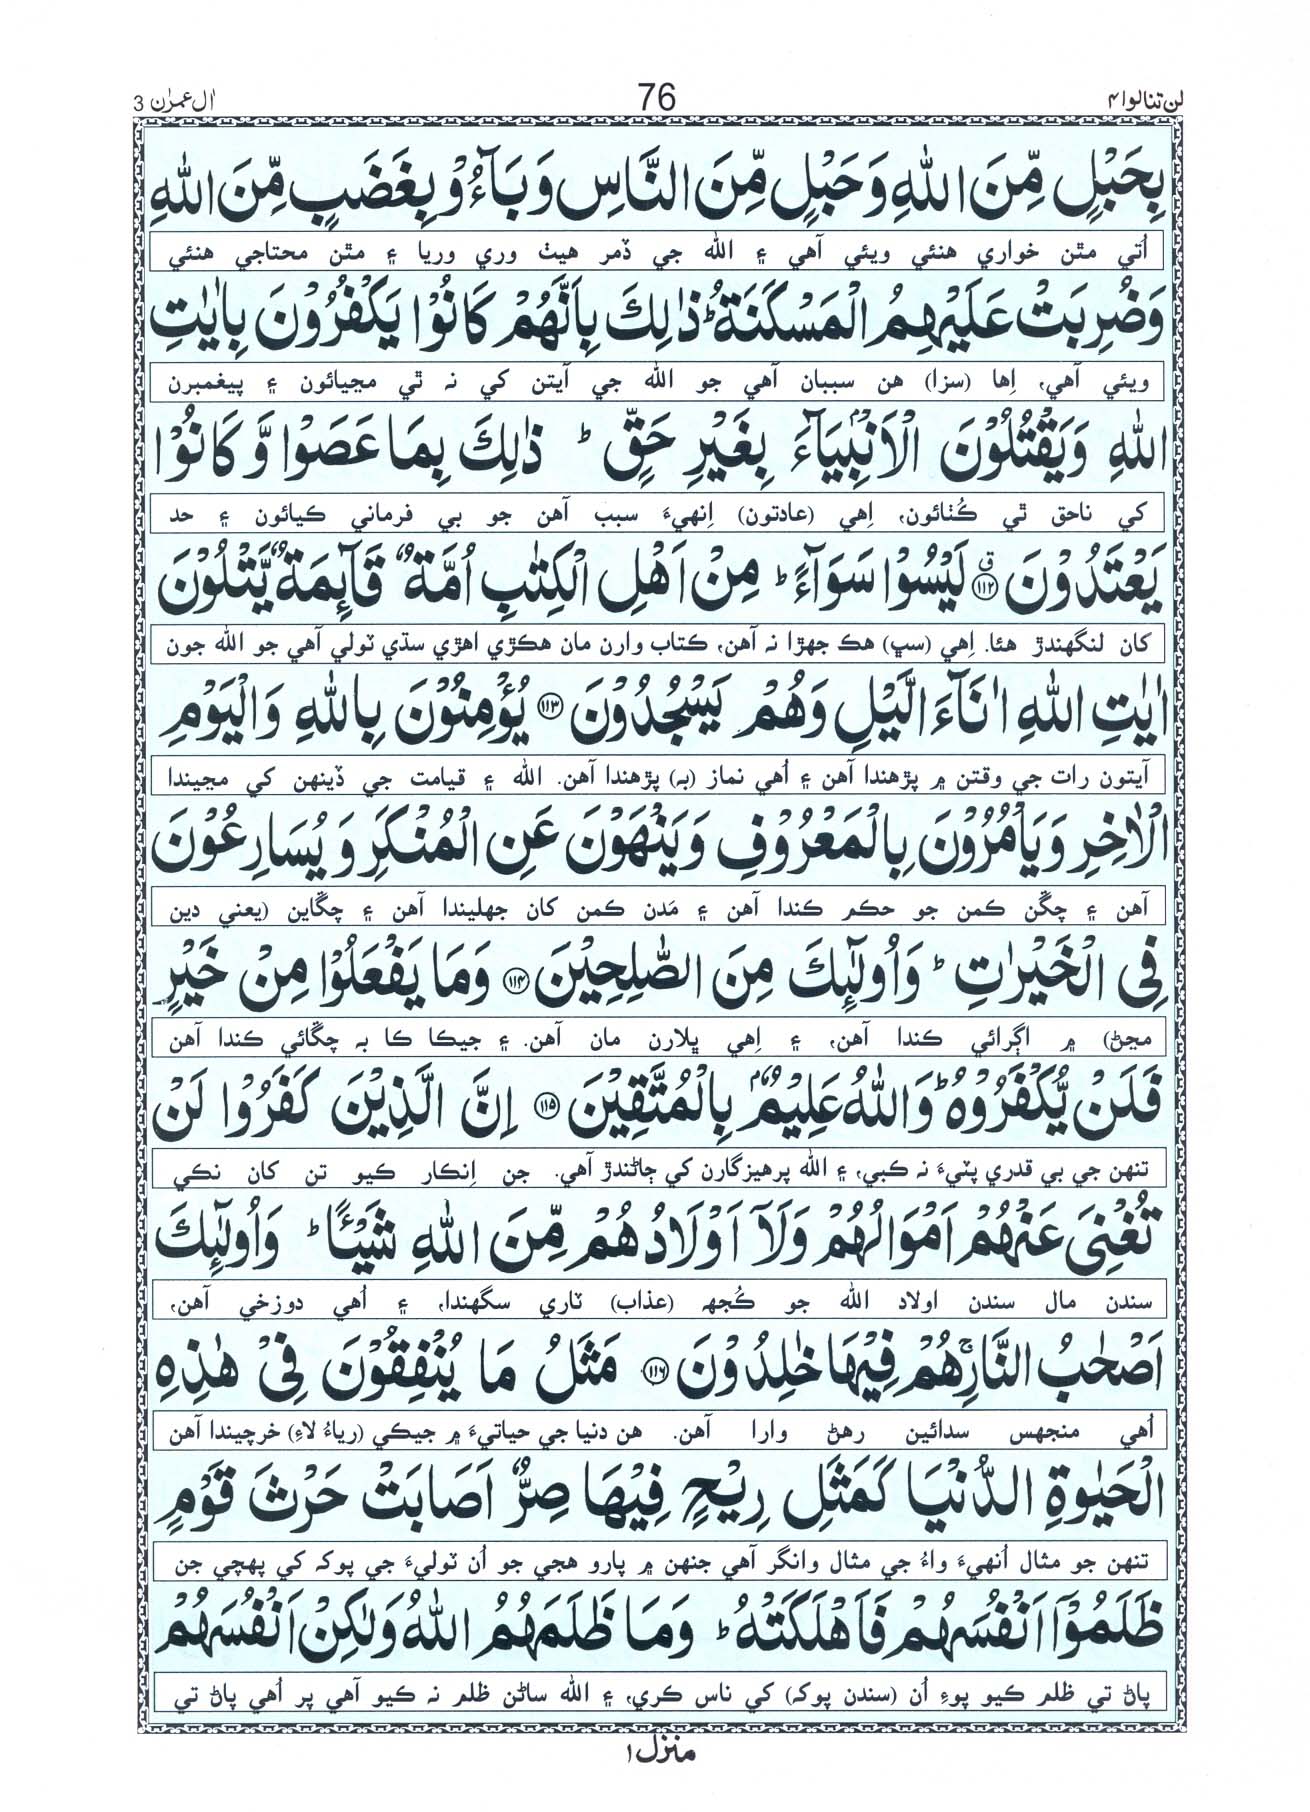 لن تنالوا ۴
76
اٰل عمرٰن 3
بِحَبْلٍ مِّنَ اللّٰهِ وَحَبْلٍ مِّنَ النَّاسِ وَبَآءُوْ بِغَضَبٍ مِّنَ اللّٰهِ
اُتي مٿن خواري هنئي ويئي آهي ۽ الله جي ڏمر هيٺ وري وريا ۽ مٿن محتاجي هنئي
وَضُرِبَتْ عَلَيْهِمُ الْمَسْكَنَةُ ؕ ذٰلِكَ بِاَنَّهُمْ كَانُوْا يَكْفُرُوْنَ بِاٰيٰتِ
ويئي آهي، اِها (سزا) هن سببان آهي جو الله جي آيتن کي نہ ٿي مڃيائون ۽ پيغمبرن
اللّٰهِ وَيَقْتُلُوْنَ الْاَنْۢبِيَآءَ بِغَيْرِ حَقٍّ ؕ ذٰلِكَ بِمَا عَصَوْا وَّكَانُوْا
کي ناحق ٿي ڪُٺائون، اِهي (عادتون) اِنهيءَ سبب آهن جو بي فرماني ڪيائون ۽ حد
يَعْتَدُوْنَ ۙ‏ ﴿۱۱۲﴾ ق لَيْسُوْا سَوَآءً ؕ مِنْ اَهْلِ الْكِتٰبِ اُمَّةٌ قَآئِمَةٌ يَّتْلُوْنَ
کان لنگهندڙ هئا. اِهي (سڀ) هڪ جهڙا نہ آهن، ڪتاب وارن مان هڪڙي اهڙي سڌي ٽولي آهي جو الله جون
اٰيٰتِ اللّٰهِ اٰنَآءَ الَّيْلِ وَهُمْ يَسْجُدُوْنَ ﴿۱۱۳﴾ يُؤْمِنُوْنَ بِاللّٰهِ وَالْيَوْمِ
آيتون رات جي وقتن ۾ پڙهندا آهن ۽ اُهي نماز (بہ) پڙهندا آهن. الله ۽ قيامت جي ڏينهن کي مڃيندا
الْاٰخِرِ وَيَاْمُرُوْنَ بِالْمَعْرُوْفِ وَيَنْهَوْنَ عَنِ الْمُنْكَرِ وَيُسَارِعُوْنَ
آهن ۽ چڱن ڪمن جو حڪم ڪندا آهن ۽ مَدن ڪمن کان جهليندا آهن ۽ چڱاين (يعني دين
فِى الْخَيْرٰتِ ؕ وَاُولٰٓئِكَ مِنَ الصّٰلِحِيْنَ ﴿۱۱۴﴾ وَمَا يَفْعَلُوْا مِنْ خَيْرٍ
مڃڻ) ۾ اڳرائي ڪندا آهن، ۽ اِهي ڀلارن مان آهن. ۽ جيڪا ڪا بہ چڱائي ڪندا آهن
فَلَنْ يُّكْفَرُوْهُ ؕ وَاللّٰهُ عَلِيْمٌۢ بِالْمُتَّقِيْنَ ﴿۱۱۵﴾ اِنَّ الَّذِيْنَ كَفَرُوْا لَنْ
تنهن جي بي قدري پٽيءَ نہ ڪبي، ۽ الله پرهيزگارن کي ڄاڻندڙ آهي. جن اِنڪار ڪيو تن کان نڪي
تُغْنِىَ عَنْهُمْ اَمْوَالُهُمْ وَلَآ اَوْلَادُهُمْ مِّنَ اللّٰهِ شَيْـًٔا ؕ وَاُولٰٓئِكَ
سندن مال سندن اولاد الله جو ڪُجهہ (عذاب) ٽاري سگهندا، ۽ اُهي دوزخي آهن،
اَصْحٰبُ النَّارِ ۚ هُمْ فِيْهَا خٰلِدُوْنَ ﴿۱۱۶﴾ مَثَلُ مَا يُنْفِقُوْنَ فِىْ هٰذِهِ
اُهي منجهس سدائين رهڻ وارا آهن. هن دنيا جي حياتيءَ ۾ جيڪي (رياءُ لاءِ) خرچيندا آهن
الْحَيٰوةِ الدُّنْيَا كَمَثَلِ رِيْحٍ فِيْهَا صِرٌّ اَصَابَتْ حَرْثَ قَوْمٍ
تنهن جو مثال اُنهيءَ واءُ جي مثال وانگر آهي جنهن ۾ پارو هجي جو اُن ٽوليءَ جي پوک کي پهچي جن
ظَلَمُوْۤا اَنْفُسَهُمْ فَاَهْلَكَتْهُ ؕ وَمَا ظَلَمَهُمُ اللّٰهُ وَلٰكِنْ اَنْفُسَهُمْ
پاڻ تي ظلم ڪيو پوءِ اُن (سندن پوک) کي ناس ڪري، ۽ الله ساڻن ظلم نہ ڪيو آهي پر اُهي پاڻ تي
منزل ۱